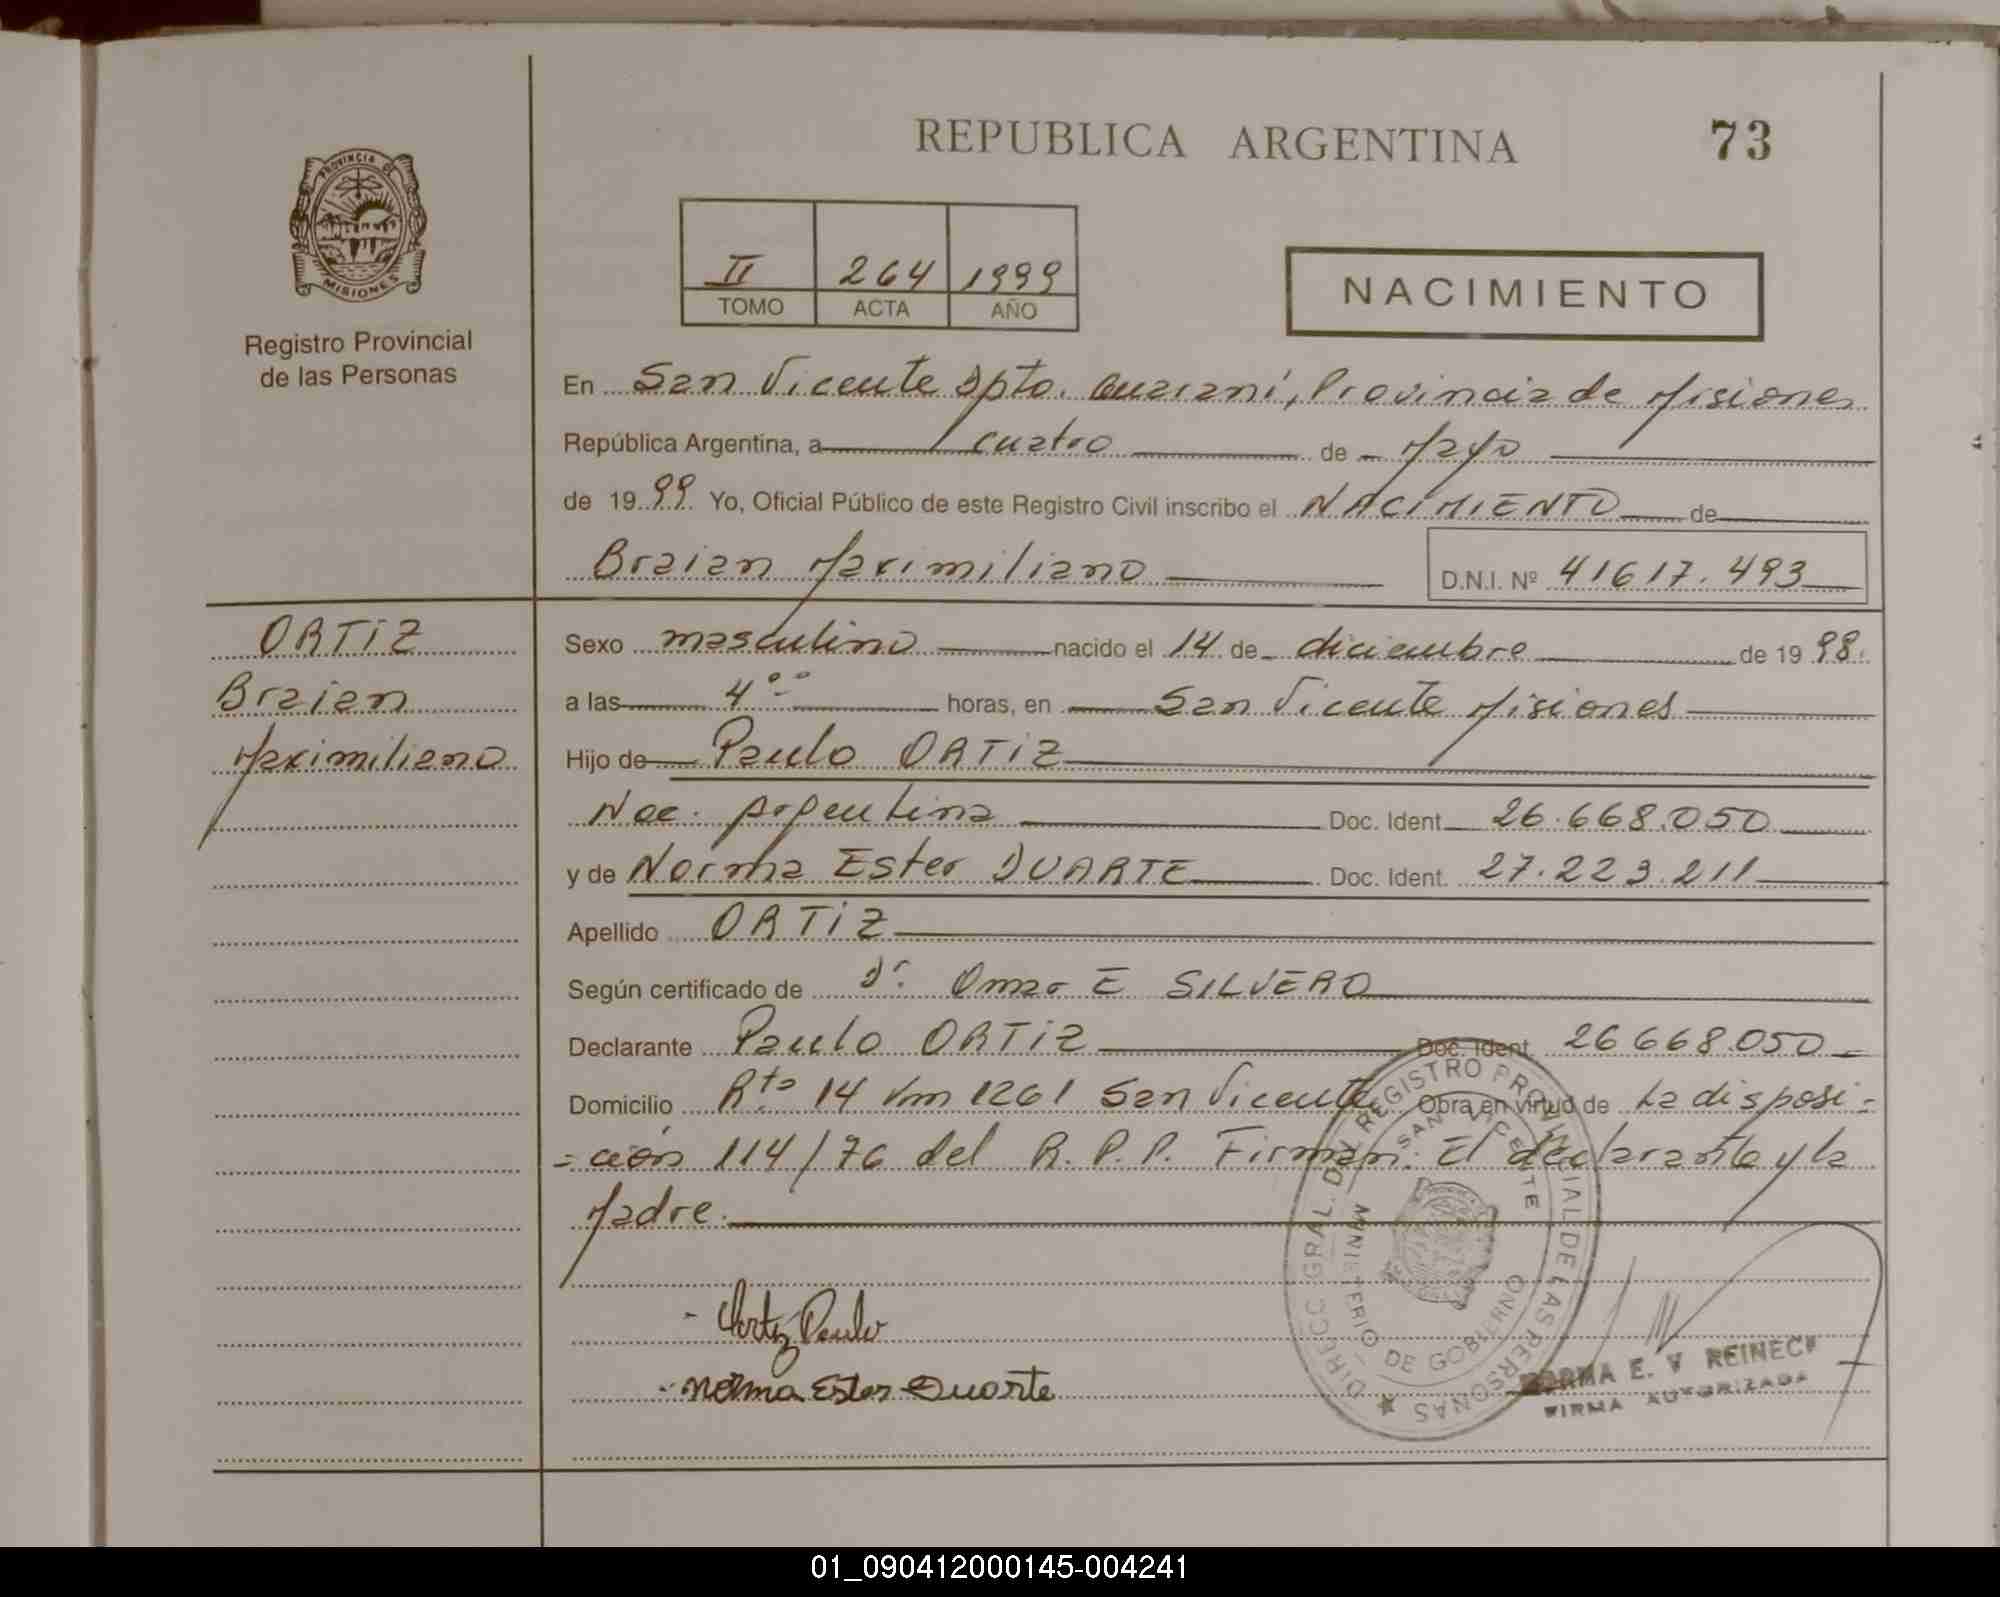 REPUBLICA ARGENTINA
73
PROVINCIA DE
MISIONES
Registro Provincial
de las Personas
II 264 1999
TOMO ACTA AÑO
NACIMIENTO
En San Vicente Dpto. Guaraní, Provincia de Misiones
República Argentina, a cuatro de Mayo
de 1999 Yo, Oficial Público de este Registro Civil inscribo el NACIMIENTO de
Braian Maximiliano D.N.I. Nº 41617.493
ORTIZ
Braian
Maximiliano
Sexo masculino nacido el 14 de diciembre de 1998.
a las 4°° horas, en San Vicente Misiones
Hijo de Paulo ORTIZ
Nac. Argentina Doc. Ident. 26.668.050
y de Norma Ester DUARTE Doc. Ident. 27.223.211
Apellido ORTIZ
Según certificado de Dr. Omar E SILVERO
Declarante Paulo ORTIZ Doc. Ident. 26668.050
Domicilio Rta 14 km 1261 San Vicente Obra en virtud de La disposi=
=ción 114/76 del R.P.P. Firman: El declarante y la
Madre.
DIRECC GRAL. DEL REGISTRO PROVINCIAL DE LAS PERSONAS
SAN VICENTE
MINISTERIO DE GOBIERNO
- Ortiz Paulo
- Norma Ester Duarte
NORMA E. V REINECK
FIRMA AUTORIZADA
01_090412000145-004241